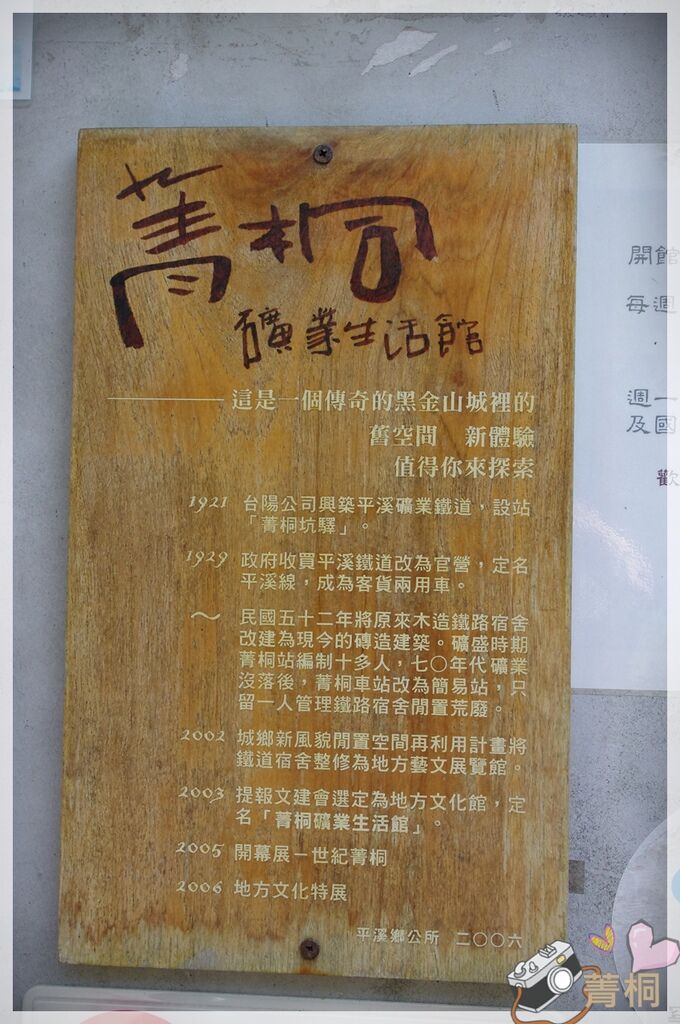 菁桐
礦業生活館
——— 這是一個傳奇的黑金山城裡的
舊空間 新體驗
值得你來探索
1921 台陽公司興築平溪礦業鐵道，設站
「菁桐坑驛」。
1929 政府收買平溪鐵道改為官營，定名
平溪線，成為客貨兩用車。
～ 民國五十二年將原來木造鐵路宿舍
改建為現今的磚造建築。礦盛時期
菁桐站編制十多人，七〇年代礦業
沒落後，菁桐車站改為簡易站，只
留一人管理鐵路宿舍閒置荒廢。
2002 城鄉新風貌閒置空間再利用計畫將
鐵道宿舍整修為地方藝文展覽館。
2003 提報文建會選定為地方文化館，定
名「菁桐礦業生活館」。
2005 開幕展－世紀菁桐
2006 地方文化特展
平溪鄉公所 二〇〇六
開館
每週
週一
及國
歡
菁桐